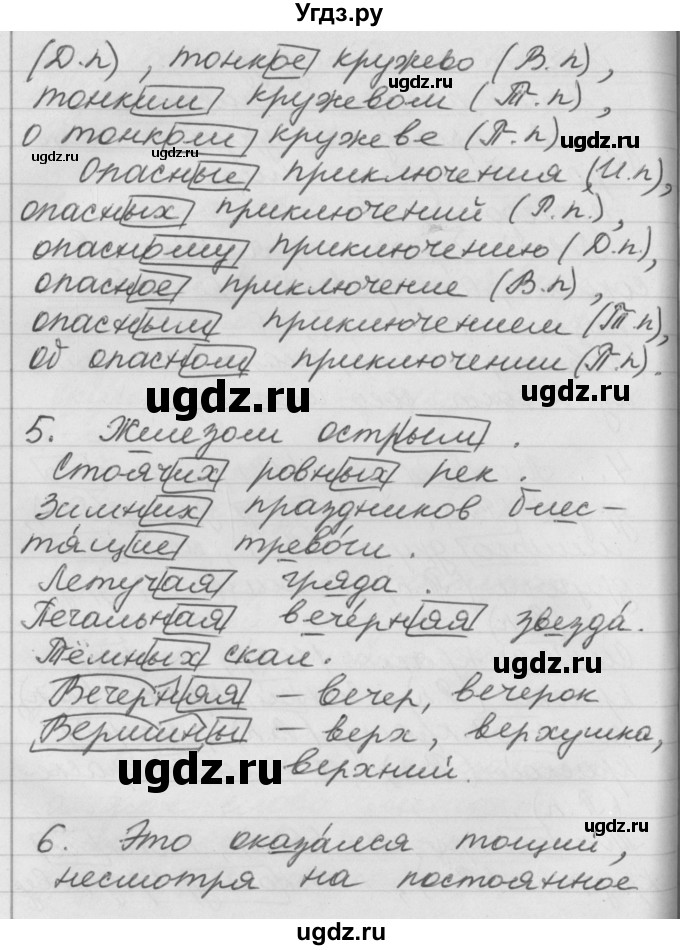 Угдз.ру
(Д.п), тонкое кружево (В.п),
тонким кружевом (Т.п),
о тонком кружеве (П.п)
Опасные приключения (И.п),
опасных приключений (Р.п.),
опасному приключению (Д.п.),
опасное приключение (В.п),
опасным приключением (Т.п),
об опасном приключении (П.п).
5. Железом острым.
Стоячих ровных рек.
Зимних праздников блес-
тя́щие трево́ги.
Летучая гряда.
Печальная вече́рняя звезда́.
Тёмных скал.
Вечерняя – вечер, вечерок
Вершины – верх, верхушка,
верхний.
6. Это оказа́лся тощий,
несмотря на постоянное
ugdz.ru
ugdz.ru
ugdz.ru
ugdz.ru
ugdz.ru
ugdz.ru
ugdz.ru
ugdz.ru
ugdz.ru
ugdz.ru